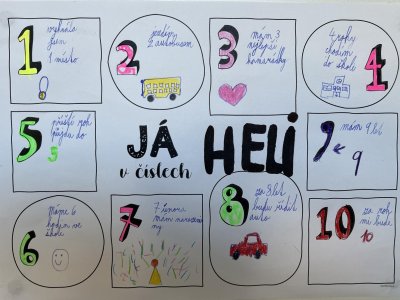 1
vyhrála
jsem
1 místo
2
jezdím
2 autobusem
3
mám 3
nejlepší
kamarádky
4 roky
chodím
do školi
4
5
příští rok
půjdu do
5
JÁ
v číslech
HELI
9
mám 9 let
9
6
máme 6
hodin ve
škole
7
7 února
mám narozeni
ny
8
za 8 let
budu řídit
auto
10
za rok
mi bude
10